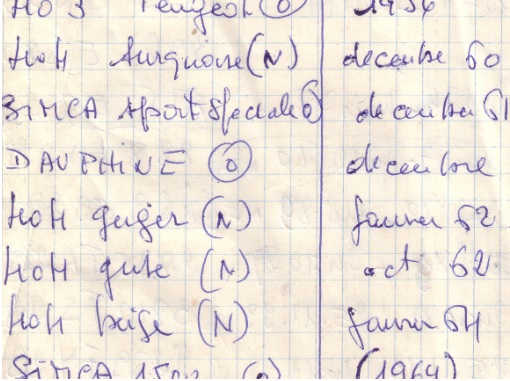 403 Peugeot (O) 1956
404 turquoise (N) decembre 60
SIMCA sport Spéciale (O) decembre 61
DAUPHINE (O) decembre
404 (N) Janvier 62
404 (N) oct 62
404 beige (N) Janvier 64
SIMCA 1500 (O) (1964)